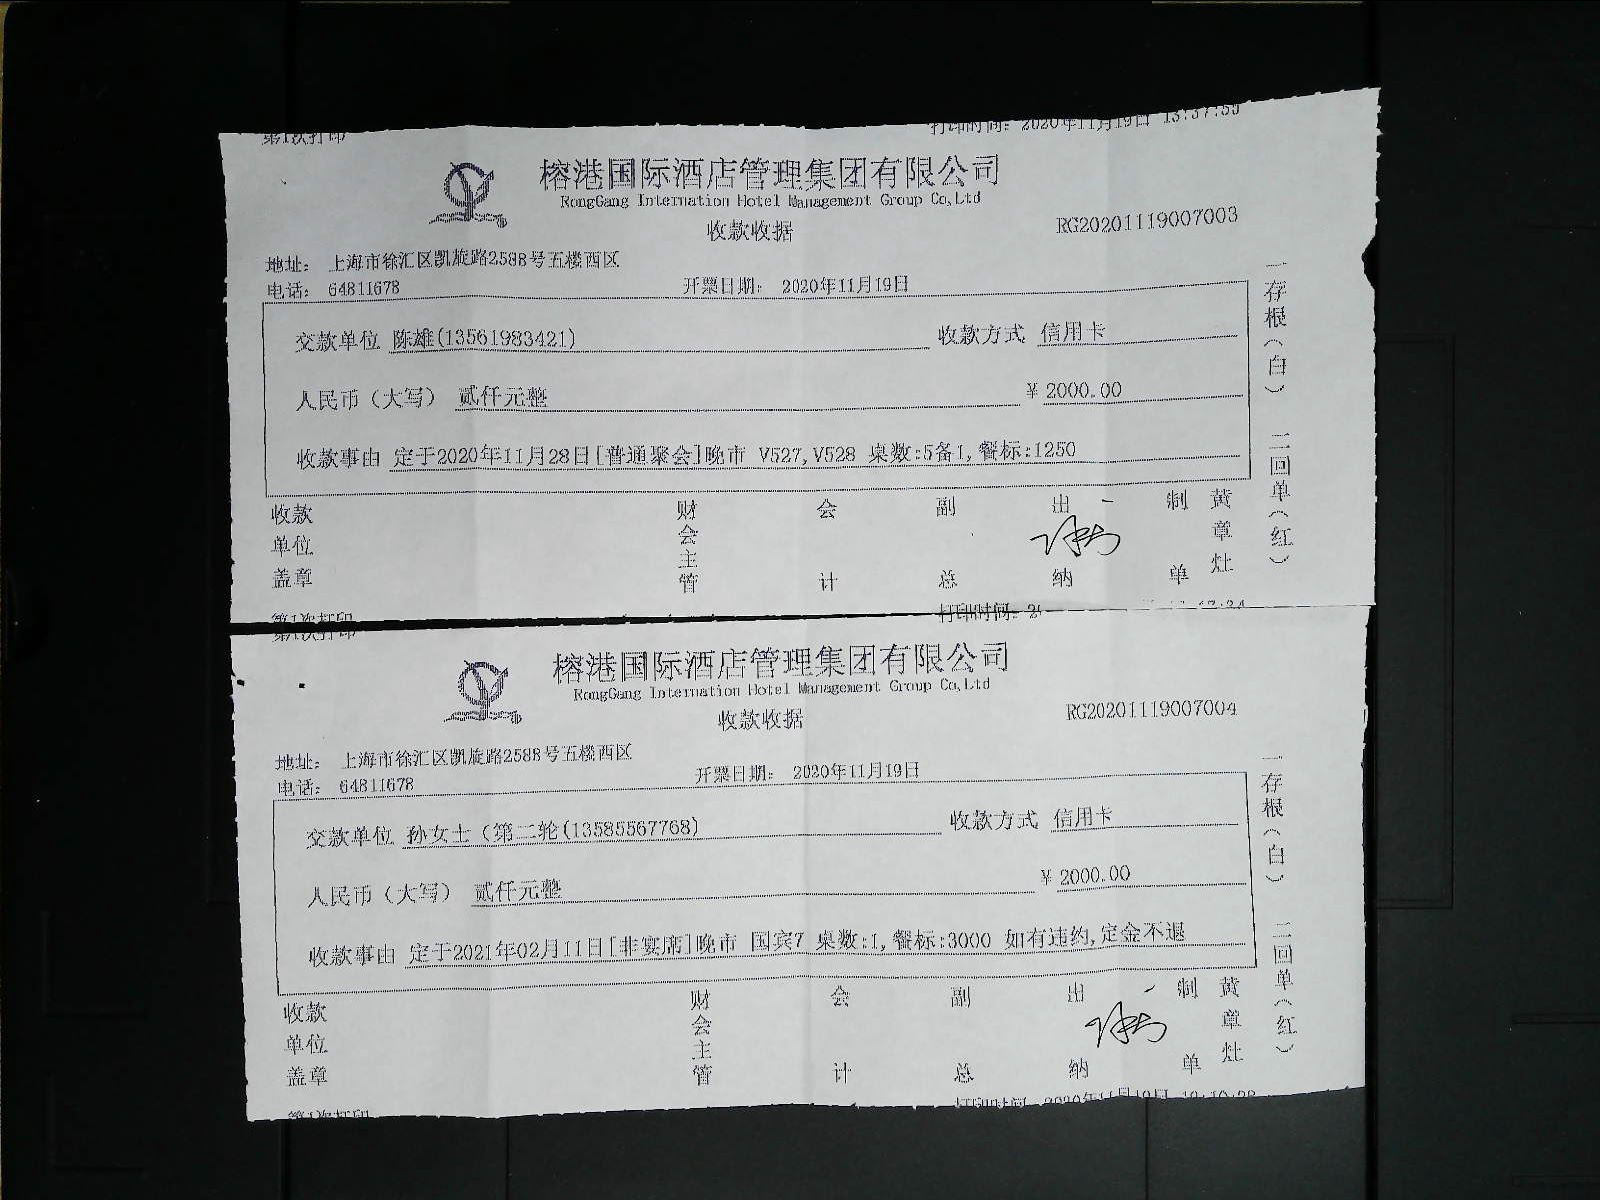 第1次打印 打印时间：2020年11月19日 13:37:53
榕港国际酒店管理集团有限公司
RongGang Internation Hotel Management Group Co,Ltd
收款收据 RG20201119007003
地址： 上海市徐汇区凯旋路2588号五楼西区
电话： 64811678 开票日期： 2020年11月19日
交款单位 陈雄(13561983421) 收款方式 信用卡
人民币（大写） 贰仟元整 ¥ 2000.00
收款事由 定于2020年11月28日[普通聚会]晚市 V527,V528 桌数:5备1,餐标:1250
收款单位盖章 财会主管 会计 副总 出纳 制单 黄章灶
一存根（白） 二回单（红）
第1次打印 打印时间：
第1次打印
榕港国际酒店管理集团有限公司
RongGang Internation Hotel Management Group Co,Ltd
收款收据 RG20201119007004
地址： 上海市徐汇区凯旋路2588号五楼西区
电话： 64811678 开票日期： 2020年11月19日
交款单位 孙女士（第二轮(13585567768) 收款方式 信用卡
人民币（大写） 贰仟元整 ¥ 2000.00
收款事由 定于2021年02月11日[非宴席]晚市 国宾7 桌数:1,餐标:3000 如有违约,定金不退
收款单位盖章 财会主管 会计 副总 出纳 制单 黄章灶
一存根（白） 二回单（红）
第1次打印 打印时间 2020年11月19日